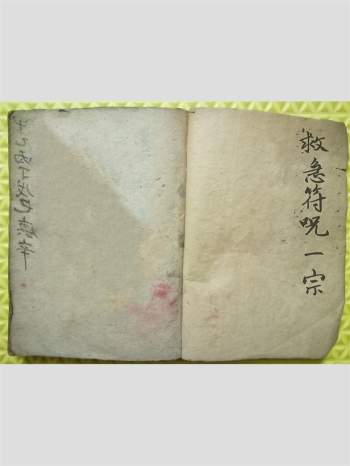 救急符咒一宗
乙丙丁戊己庚辛